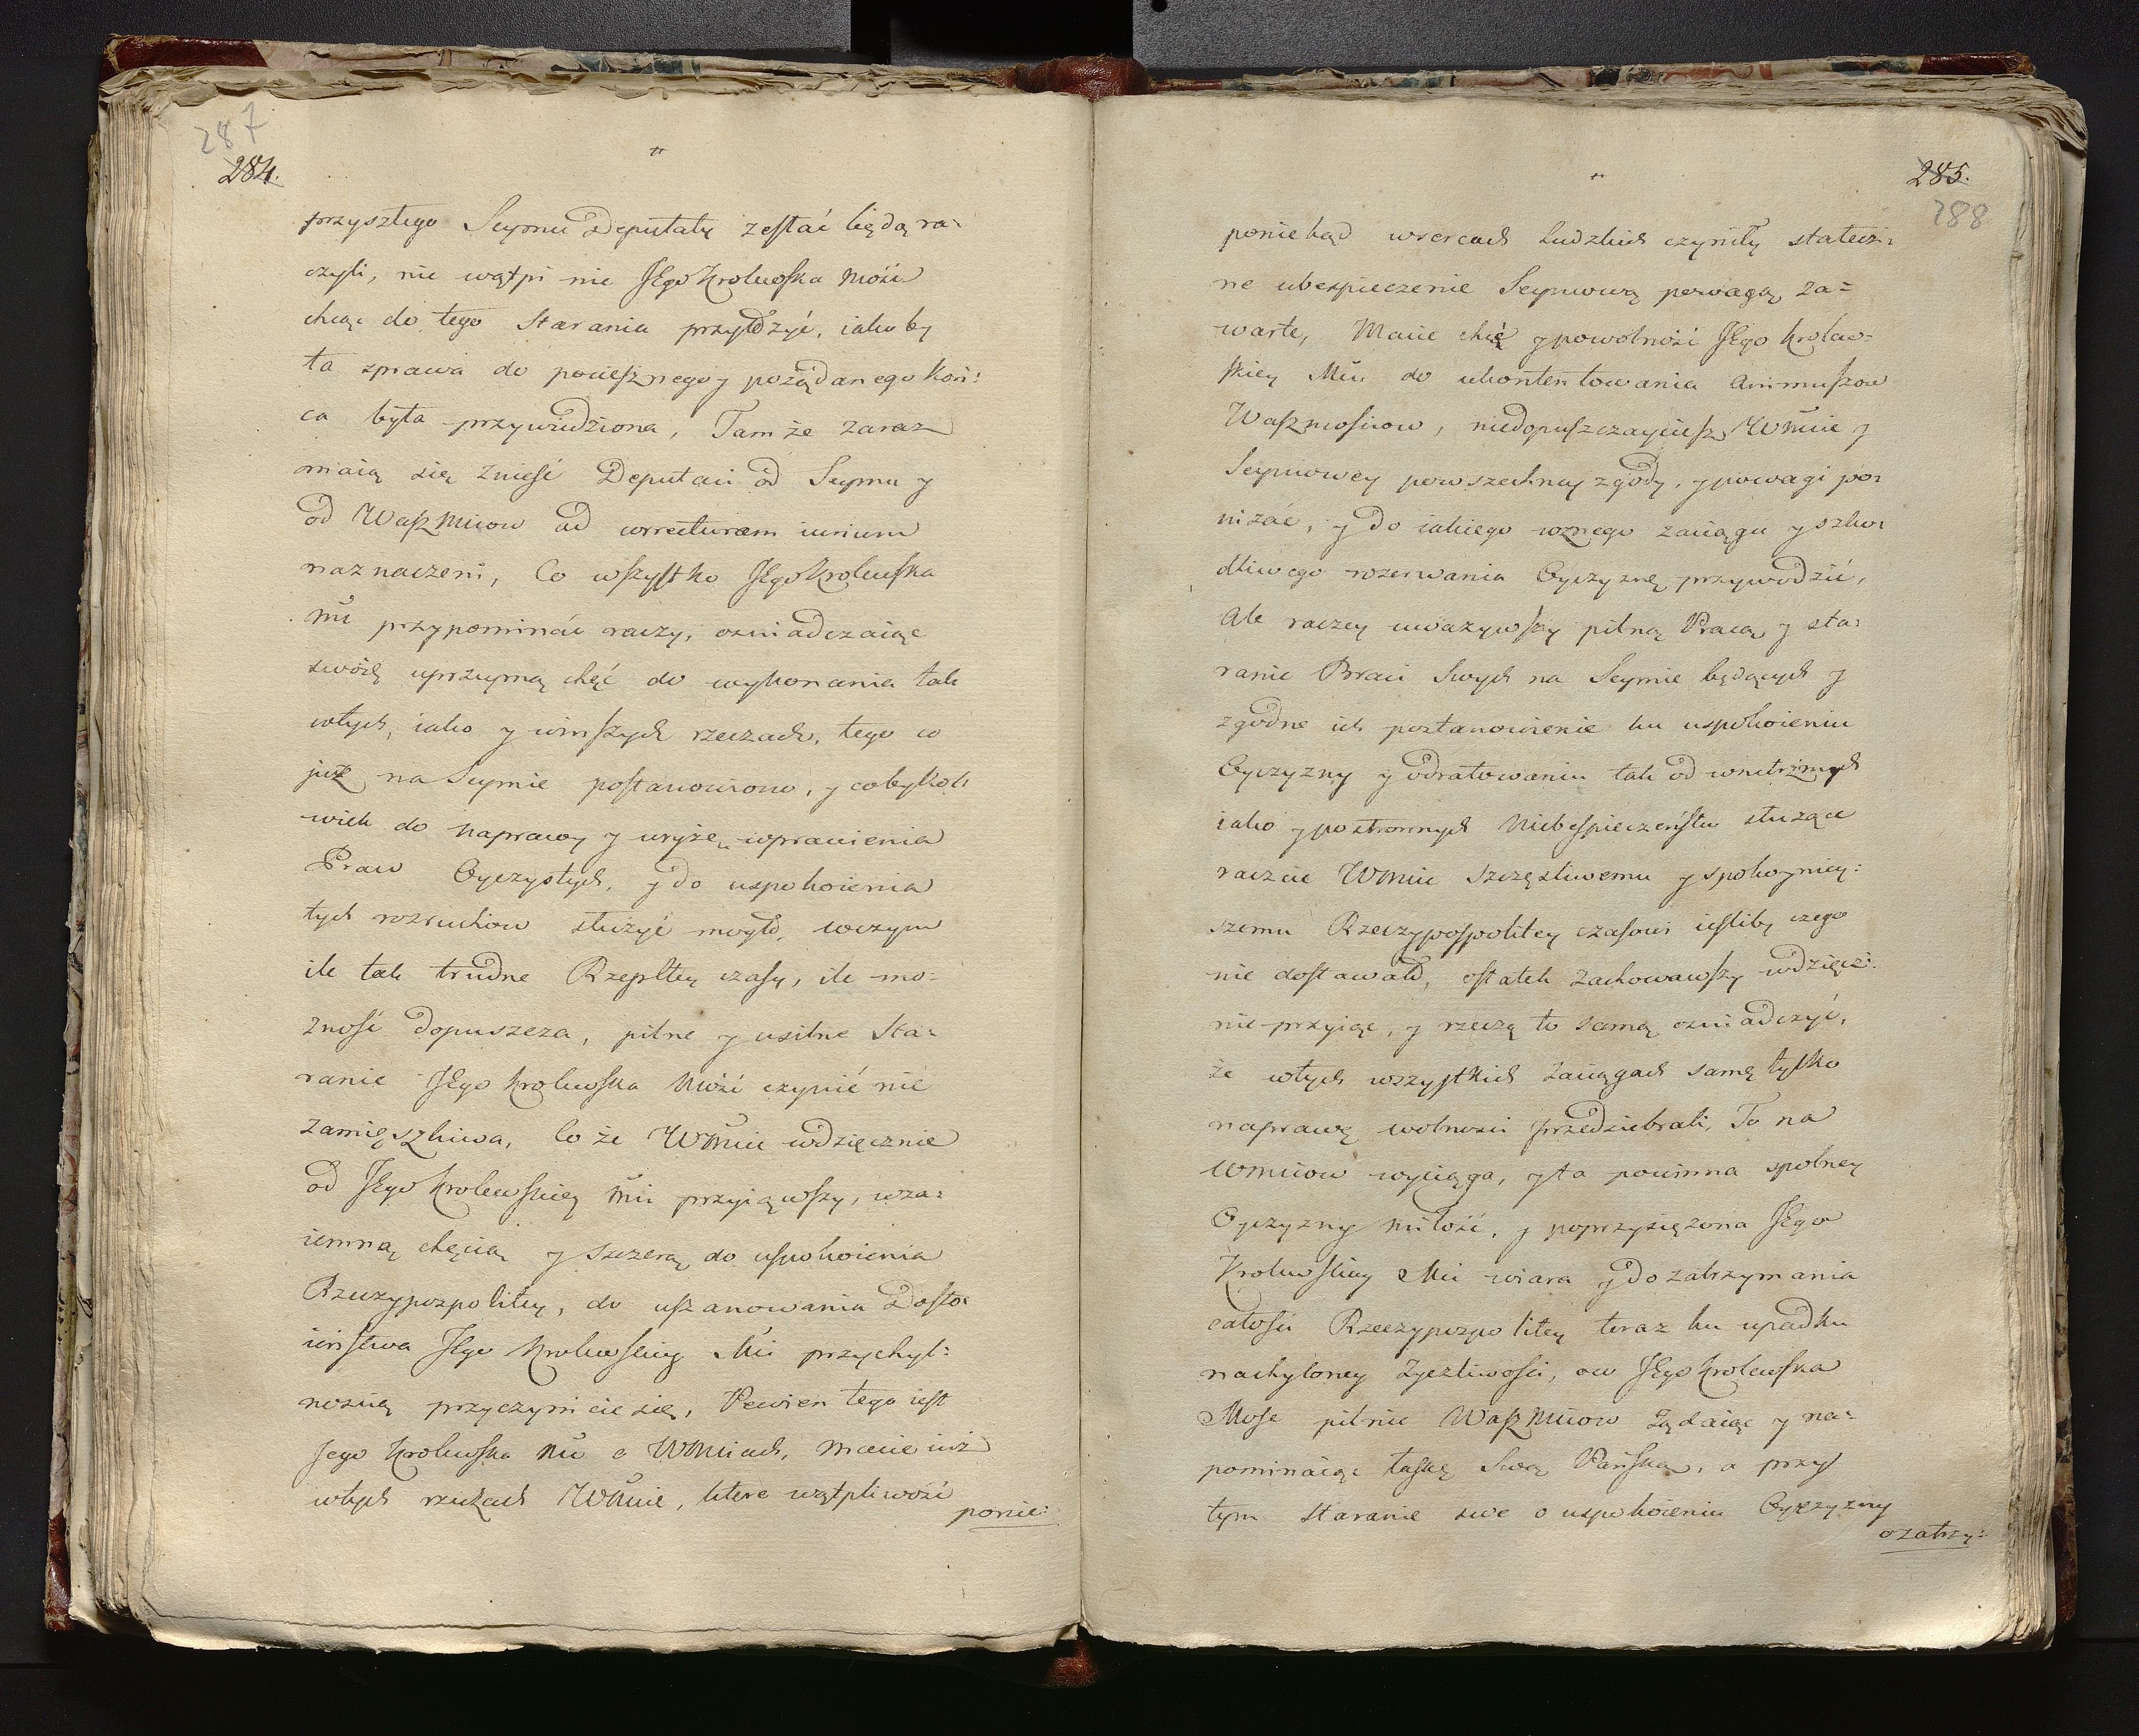 287
284.
przyszłego Seymu Deputaty zesłać będą ra-
czyli, nie wątpi nie JEgo Krolewska Mość
chcąc do tego Starania przyłożyć, iakoby
ta sprawa do pociesznego y pożądanego Koń=
ca była przywiedziona, Tamże zaraz
maią się znieść Deputaci od Seymu y
od Wasz Mciow ad correcturam iurium
naznaczeni, Co wszystko JEgo Krolewska
Mć przypominać raczy, oświadczaiąc
swoię uprzeymą chęć do wykonania tak
wtych, iako y winszych rzeczach, tego co
już na Seymie postanowiono, y cobykol=
wiek do naprawy y wryzę wprawienia
Praw Oyczystych, y do uspokoienia
tych rozruchow służyć mogło, wczym
ile tak trudne Rzeplltey czasy, ile mo=
żność dopuszcza, pilne y usilne Sta=
ranie JEgo Krolewska Mość czynić nie
zamięszkiwa, Co że WMście wdzięcznie
od JEgo Krolewskiey Mći przyiąwszy, wza=
iemną chęcią y szczerą do uspokoienia
Rzeczypospolitey, do uszanowania Dosto=
ieństwa JEgo Krolewskiey Mći przychyl=
nością przyczynicie się, Pewien tego iest
Jego Krolewska Mć o WMciach, Macie już
wtych rzeczach WMście, ktore wątpliwość
ponie=
285.
288
poniekąd wsercach ludzkich czyniły statecz=
ne ubespieczenie Seymową powagą za=
warte, Macie chęć y powolność JEgo Krolew=
skiey Mći do ukontentowania animuszow
Waszmościow, niedopuszczayciesz WMście y
Seymowey powszechney zgody, y powagi po=
niżać, y do iakiego rożnego zaciągu y szko=
dliwego rozerwania Oyczyznę przywodzić,
ale raczey uważywszy pilną Pracą y sta=
ranie Braci Swych na Seymie będących y
zgodne ich postanowienie ku uspokoieniu
Oyczyzny y odratowaniu tak od wnetrznych
iako y postronnych Niebespieczeństw służące
raczcie WMście szczęsliwemu y spokoyniey=
szemu Rzeczypospolitey czasowi iesliby czego
nie dostawało, ostatek zachowawszy wdzięcz=
nie przyiąc, y rzeczą to samą oświadczyć,
że wtych wszystkich zaciągach samę tylko
naprawę wolności przedsiebrali, To na
WMciow wyciąga, y ta powinna spolney
Oyczyzny miłość, y poprzysiężona JEgo
Krolewskiey Mći wiara y do zatrzymania
całości Rzeczypospolitey teraz ku upadku
nachyloney życzliwości, ow JEgo Krolewska
Mość pilnie Wasz Mciow żądaiąc y na=
pominaiąc łaskę Swą Pańską, a przy
tym staranie swe o uspokoieniu Oyczyzny
o zatrzy=